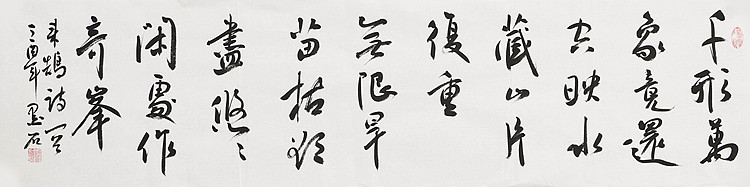 千形萬
象竟還
空映水
藏山片
復重
無限旱
苗枯欲
盡悠々
閑處作
奇峯
来鵠詩
酉年 墨石